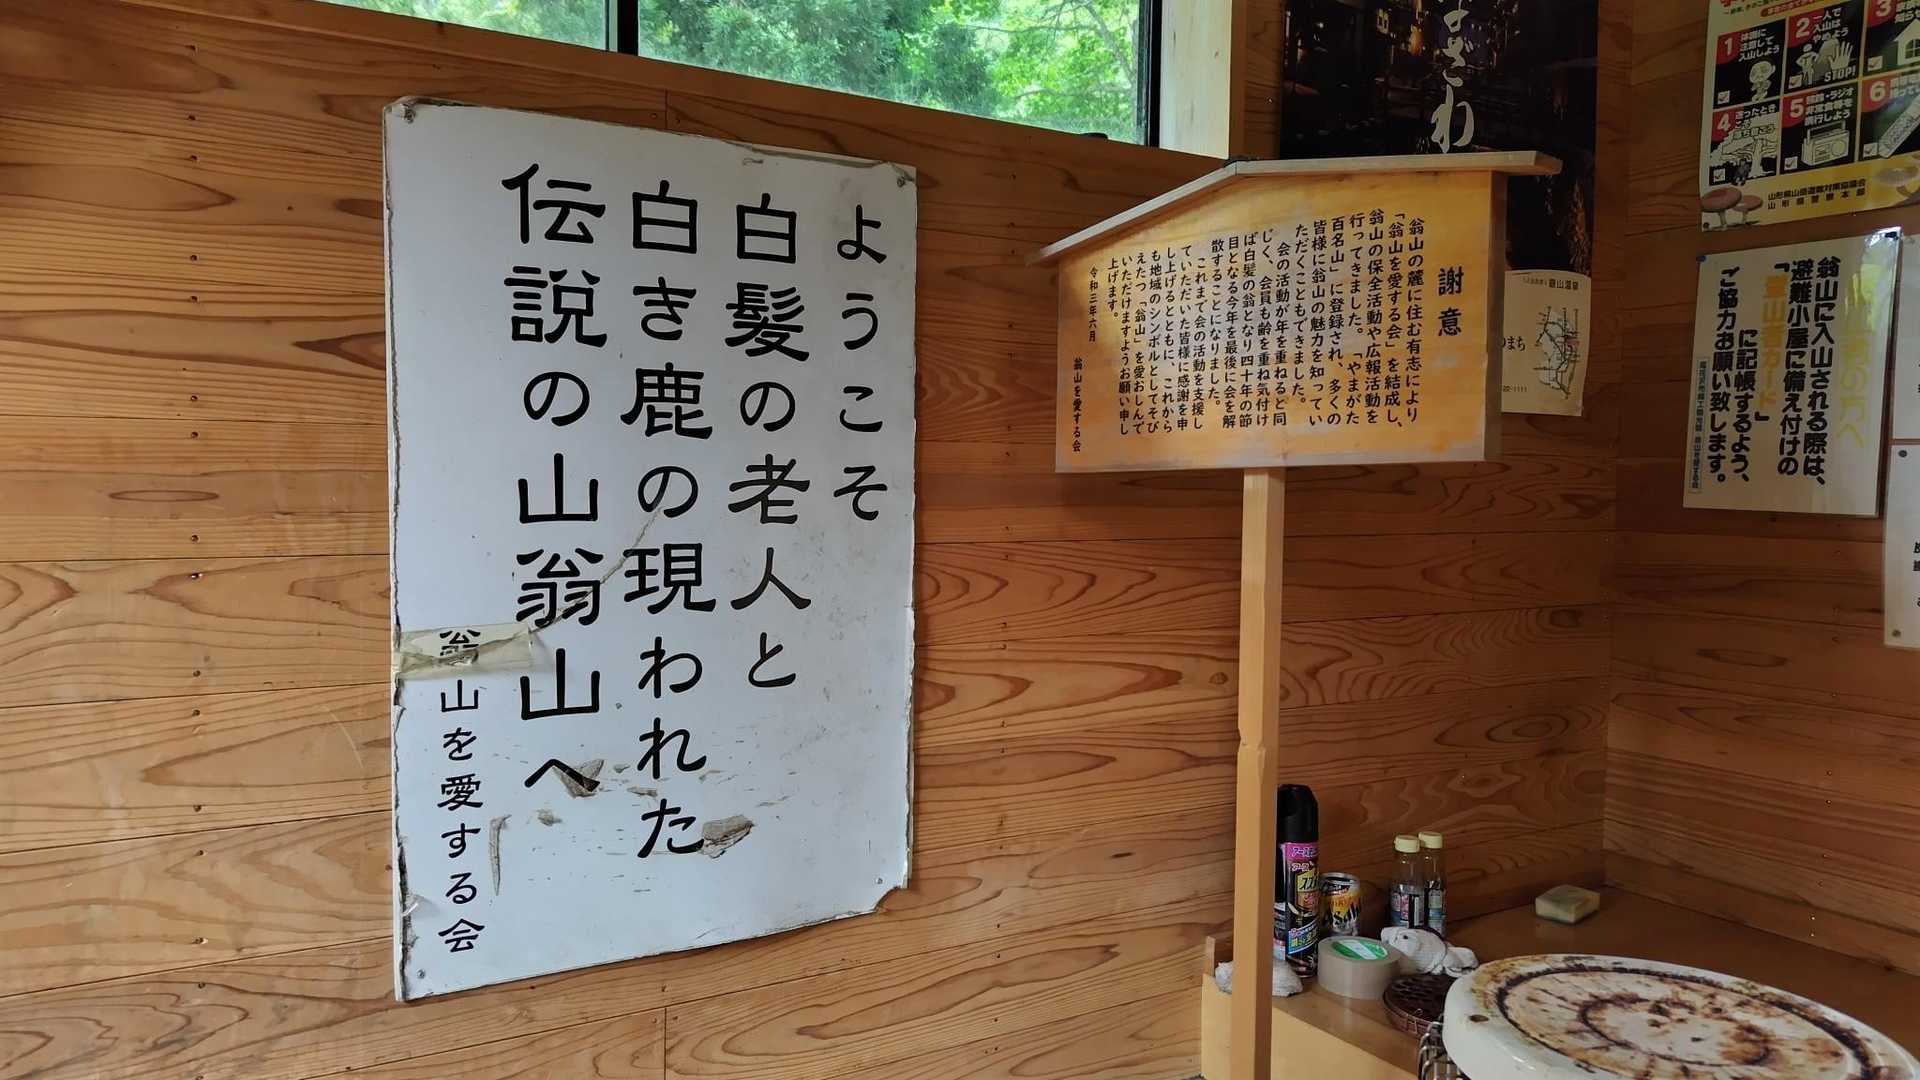 ようこそ
白髪の老人と
白き鹿の現われた
伝説の山翁山へ
翁山を愛する会
謝意
翁山の麓に住む有志により
「翁山を愛する会」を結成し、
翁山の保全活動や広報活動を
行ってきました。「やまがた
百名山」に登録され、多くの
皆様に翁山の魅力を知ってい
ただくこともできました。
会の活動が年を重ねると同
じく、会員も齢を重ね気付け
ば白髪の翁となり四十年の節
目となる今年を最後に会を解
散することになりました。
これまで会の活動を支援し
ていただいた皆様に感謝を申
し上げるとともに、これから
も地域のシンボルとしてそび
えたつ「翁山」を愛おしんで
いただけますようお願い申し
上げます。
令和三年六月
翁山を愛する会
ざわ
1 体調に
注意して
入山しよう
2 一人で
入山は
やめよう
STOP!
3
4 迷ったとき
こそ
落ち着こう
5 携帯・ラジオ
非常食等を
携行しよう
6
山形県山岳遭難対策協議会
山形県警察本部
銀山温泉
まち
22-1111
の方へ
翁山に入山される際は、
避難小屋に備え付けの
「登山者カード」
に記帳するよう、
ご協力お願い致します。
アース
Asahi